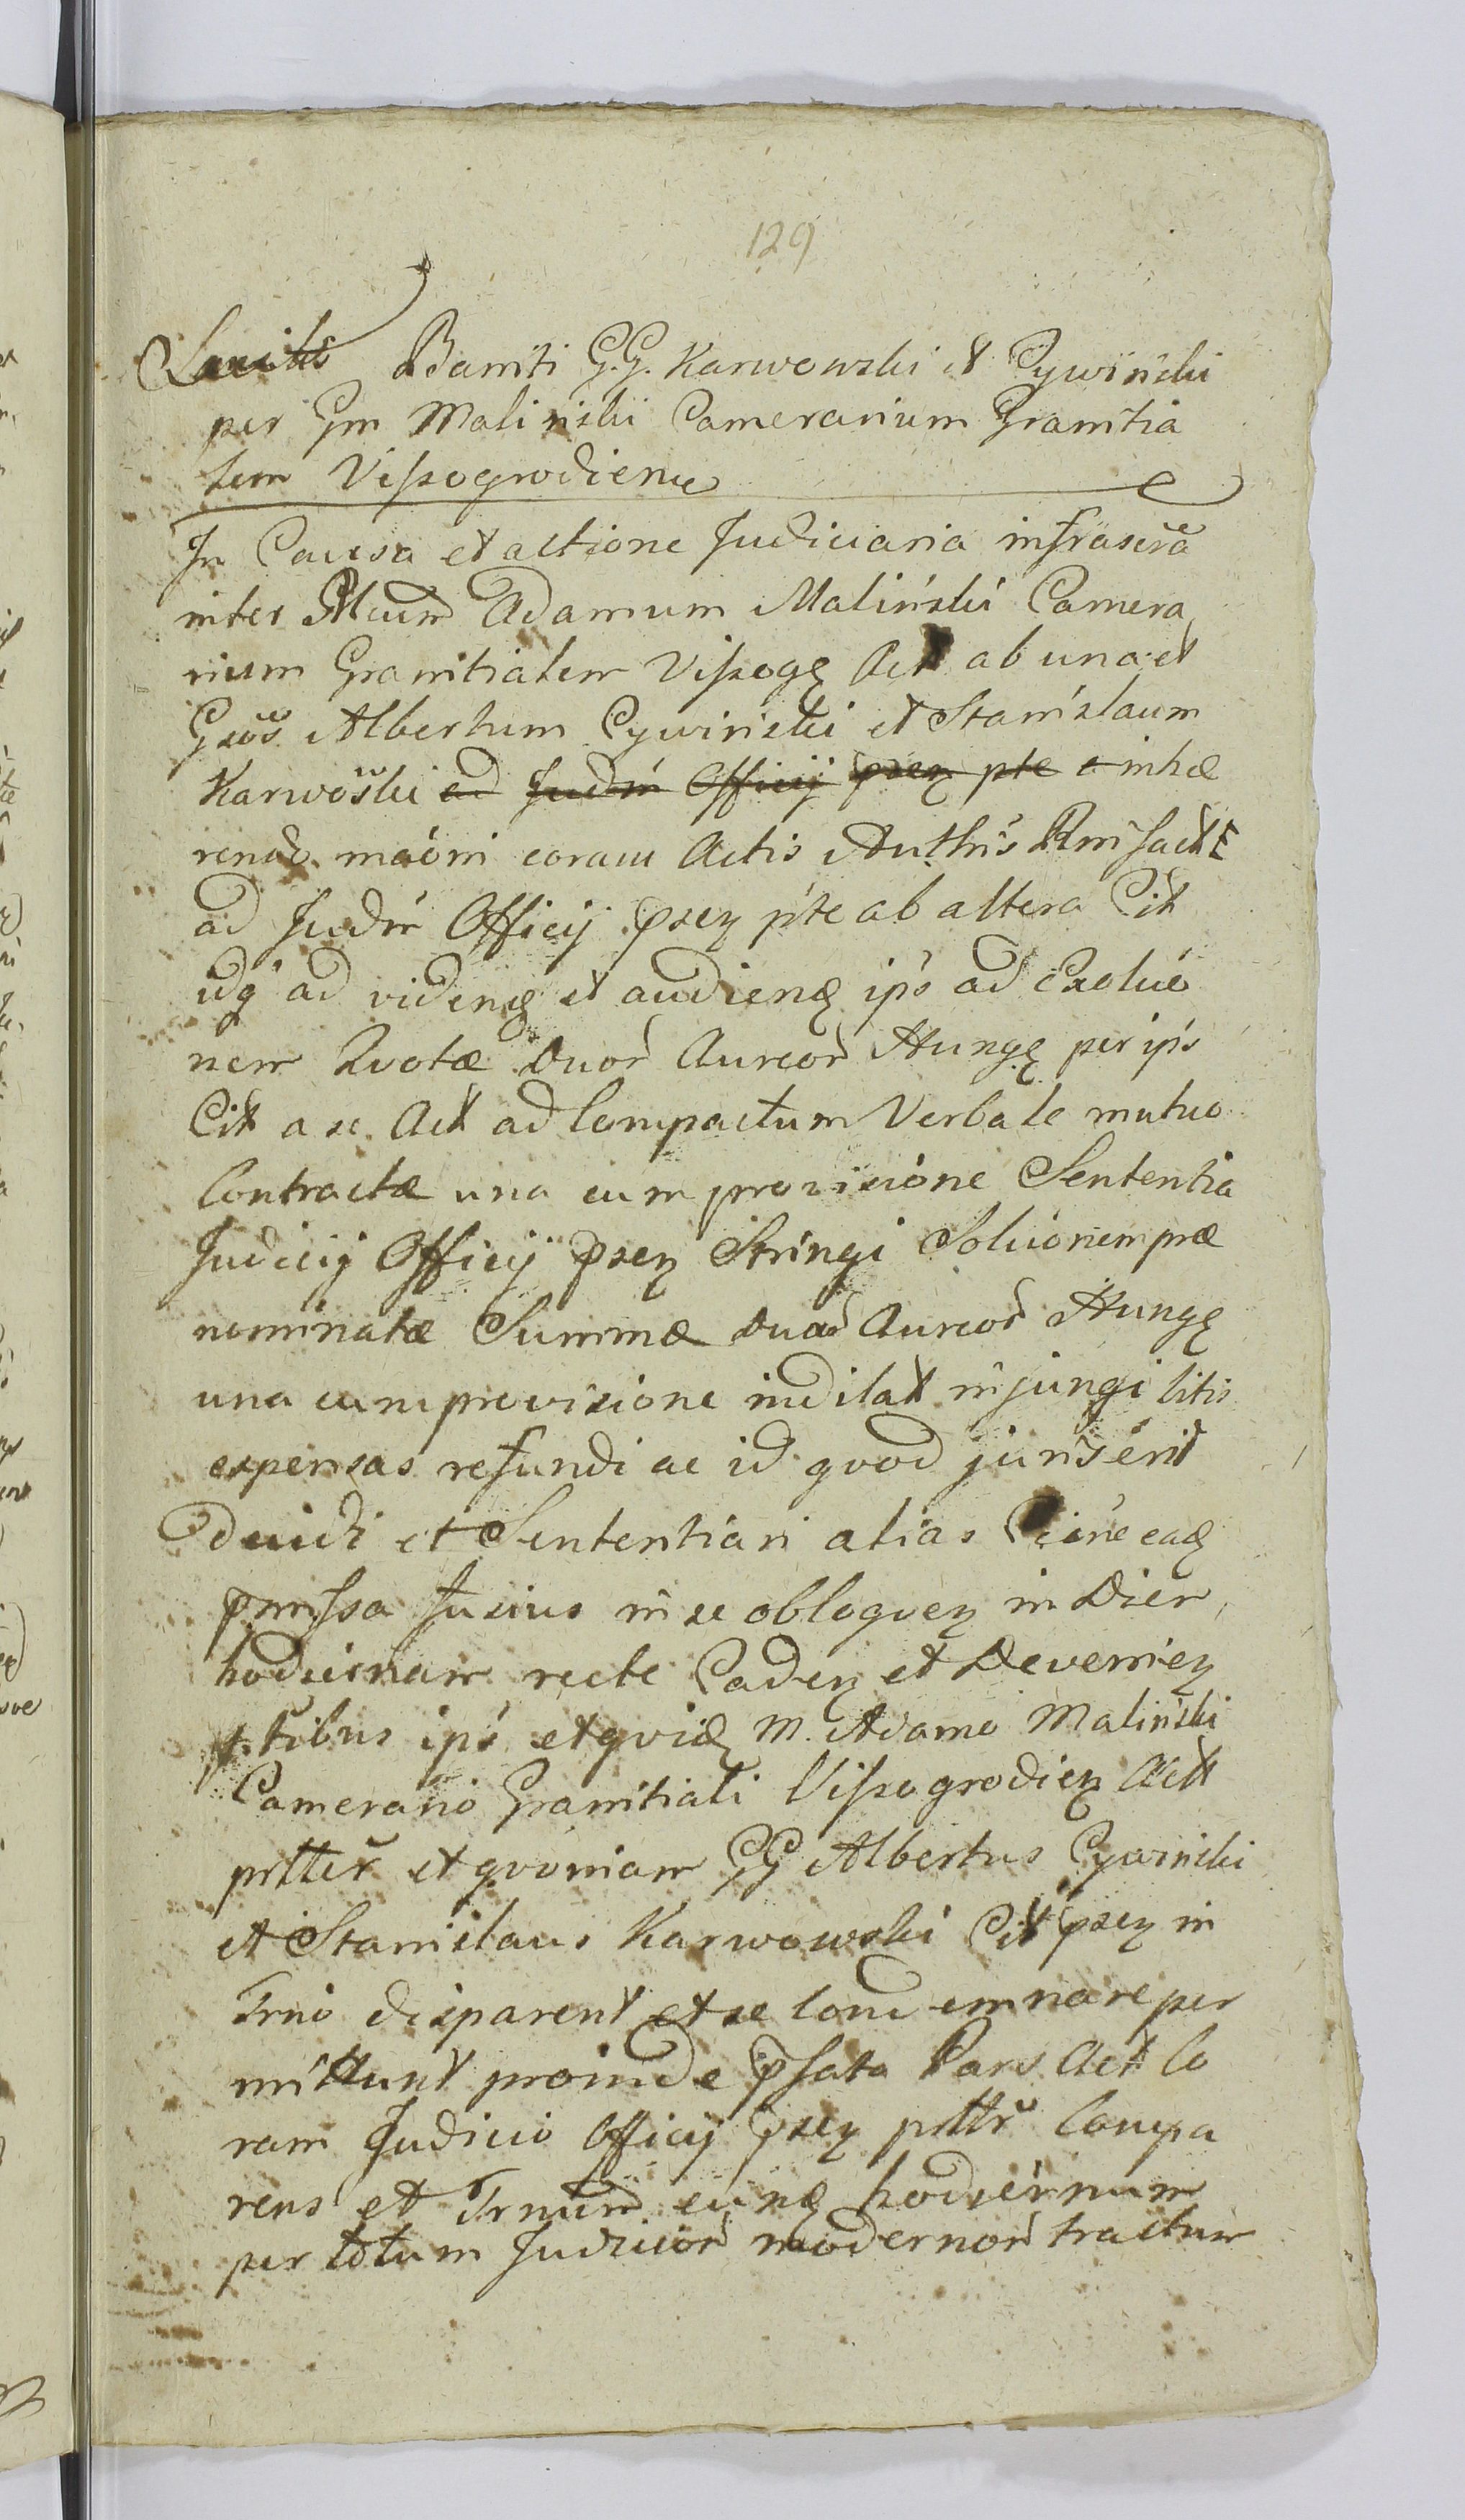 129
Bamti G.G. Karwowski et Cywinski
per Gm Malinski Camerarium Granitia
lem Vissogrodiens
In Causa et actione Judiciaria infrascra
inter Adamum Malinski Camera
rium Granitialem Vissogę Act ab una et
Gsos Albertum Cywinski et Stanislaum
Karwoski ad Judm Officij psen pte inhæ
rendo maoni coram Actis Authis Rmi factæ
ad Judm Officij psen pte ab altera Cit
idq ad videnđ et audienđ ips ad Exoluo
nem Qvotæ Duor Aureor Hungę per ips
Citt a se Actt ad Compactum Verbale mutuo
Contractæ una cum provisione Sententia
Judicij Officij psen Stringi Soluionem præ
nominatæ Summæ Duor Aureor Hungę
una cum provisione indilatt injungi litis
expensas refundi ac id qvod juris erit
Decidi et Sententiari alias eađ
pmissa fusius in se obloqven in Diem
hodiernam recte Caden et Devenien
ptibus ips et qvidę M. Adamo Malinski
Camerario Granitiali Vissogrodien Actt
prtter et qvoniam GG Albertus Cywinski
et Stanislaus Karwowski Citt psen in
Trno disparent et se condemnare per
mittunt proinde psata Pars Actt Co
ram Judicio Officij psen prttr Compa
rens et Trnum eunđ hodiernum
per totum Judicior modernor tractum